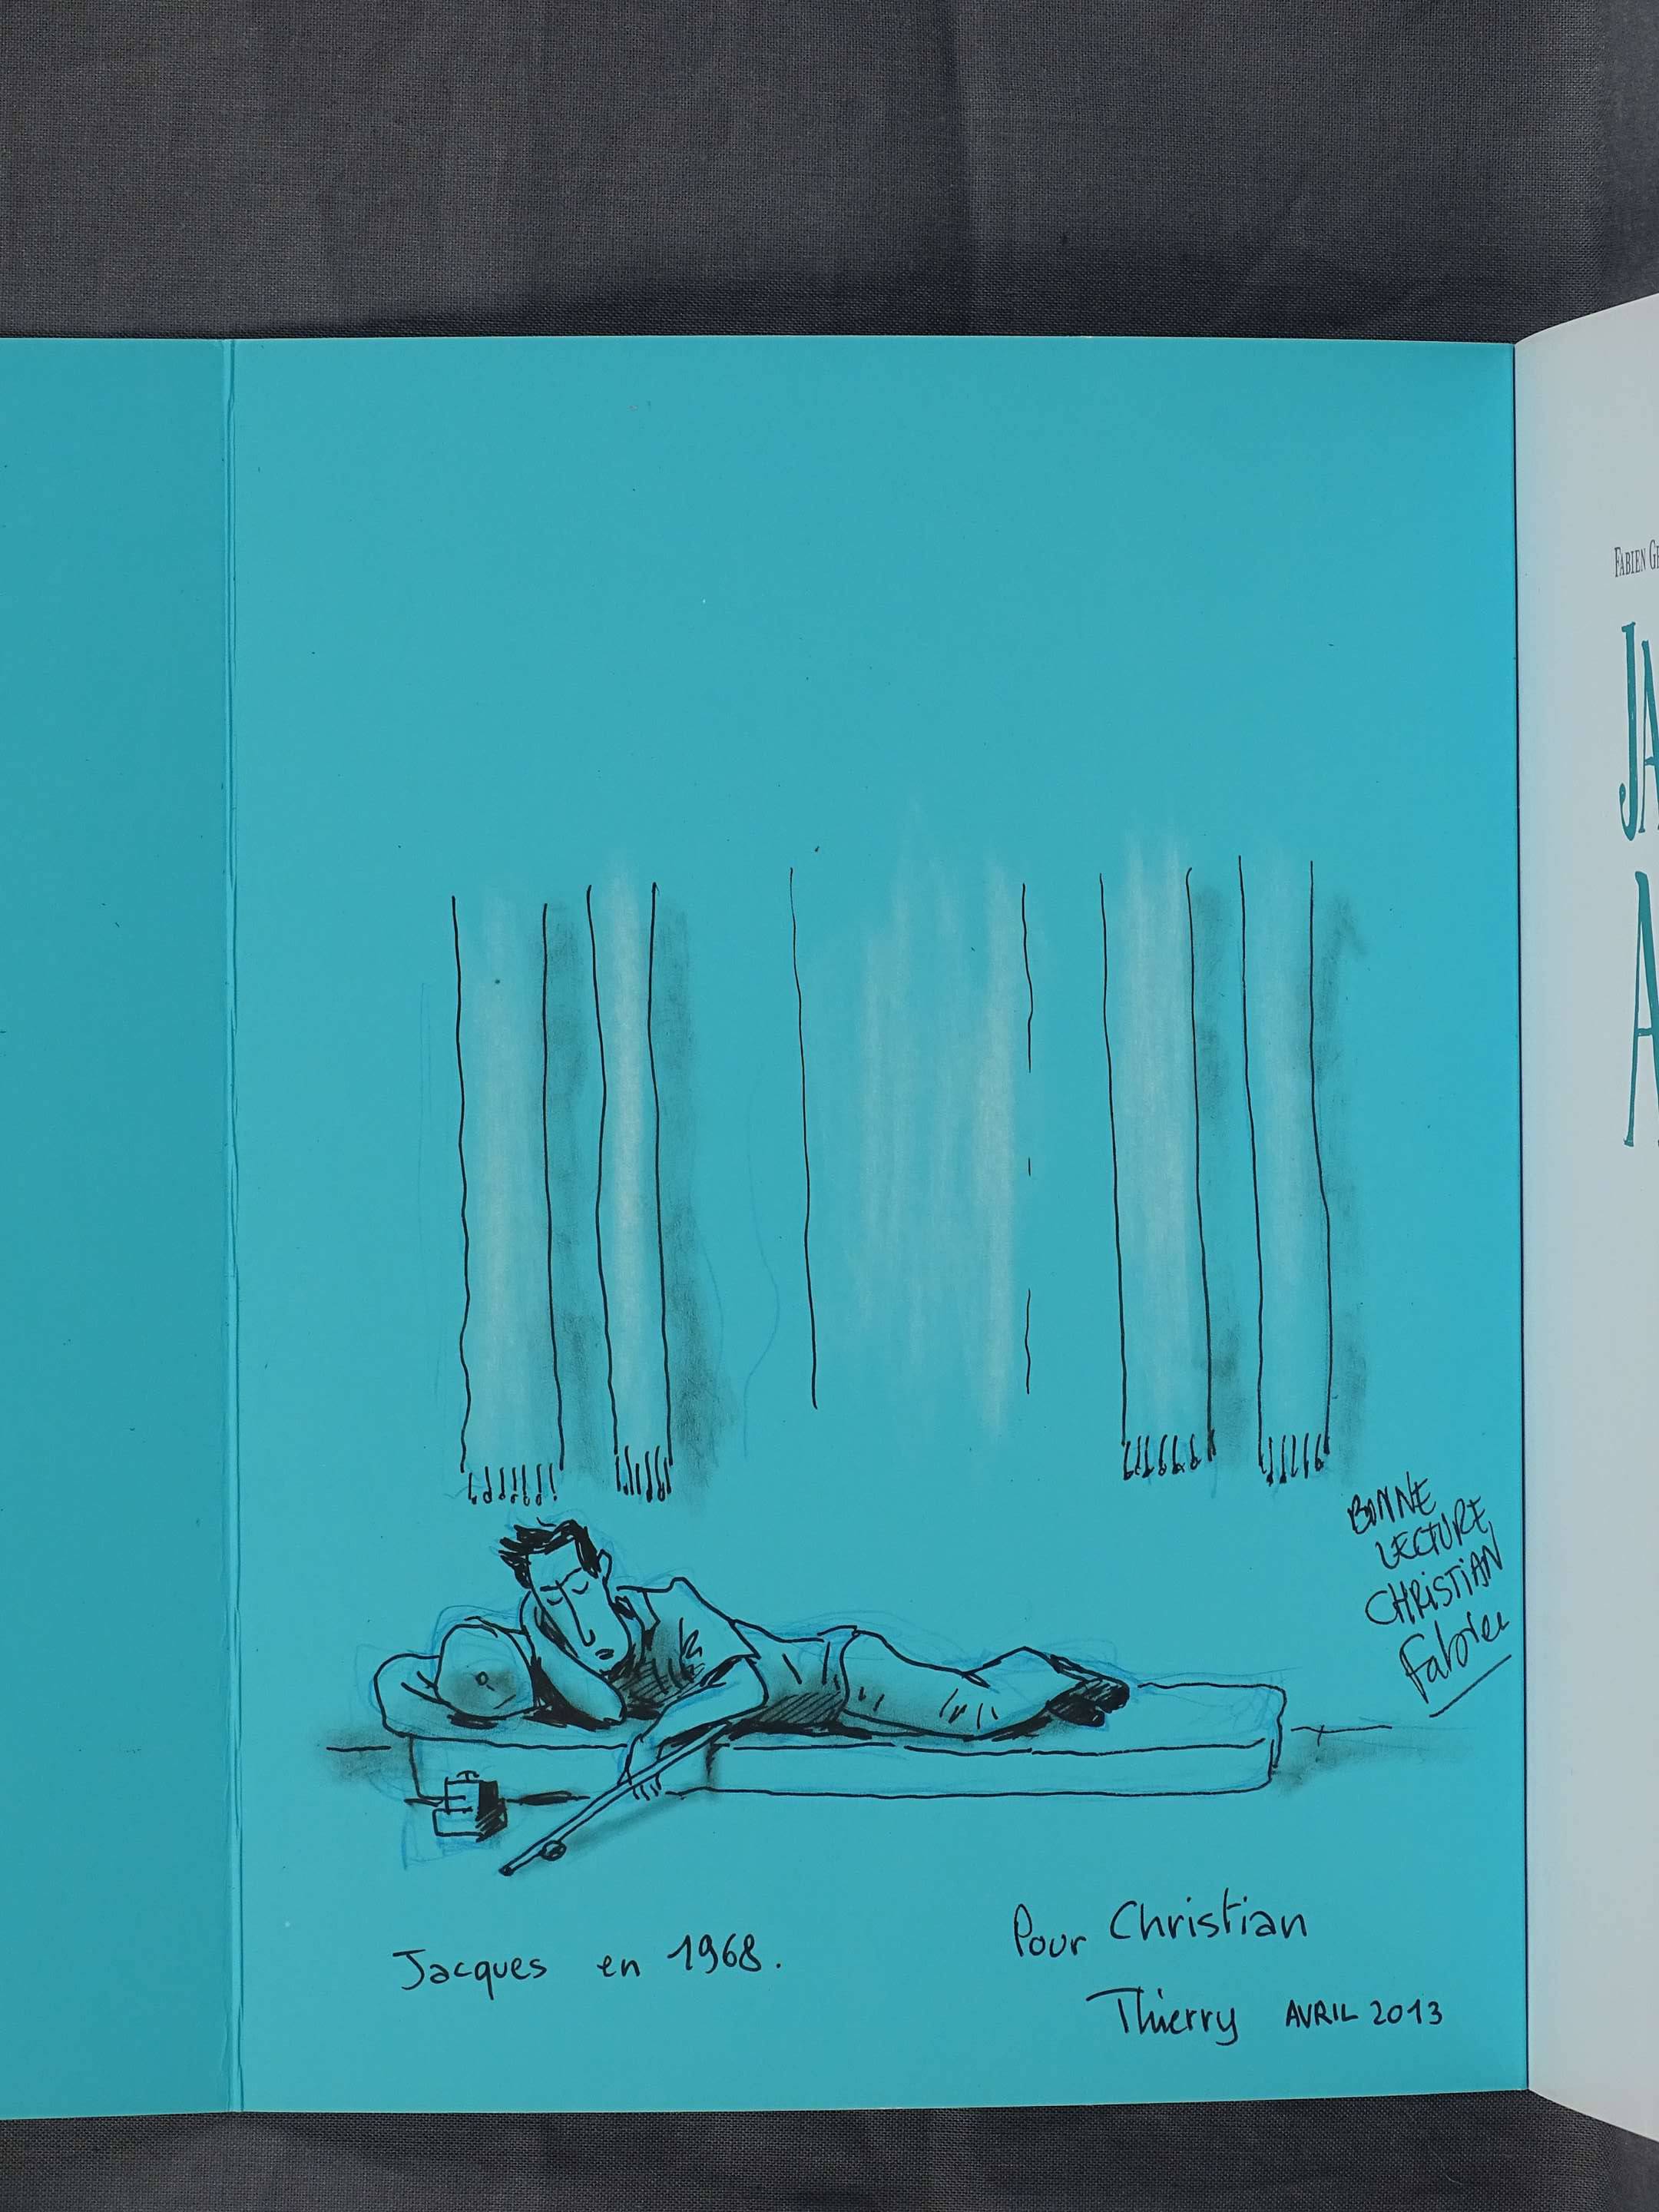 BONNE
LECTURE,
CHRISTIAN
Fabien
Jacques en 1968.
Pour Christian
Thierry AVRIL 2013
FABIEN GR
JA
A